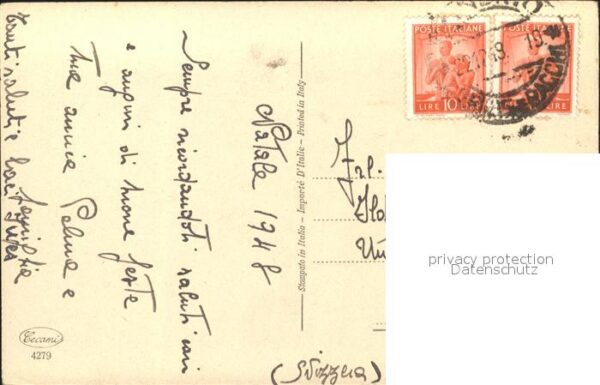 Natale 1948
Sempre ricordandoti saluti cari
e auguri di buone feste
tua amica Palma e
famiglia
Tanti saluti e baci
Stampato in Italia – Importé D'Italie – Printed in Italy
Cecami
4279
POSTE ITALIANE
LIRE 10 LIRE
POSTE ITALIANE
LIRE
Frl.
(Svizzera)
privacy protection
Datenschutz